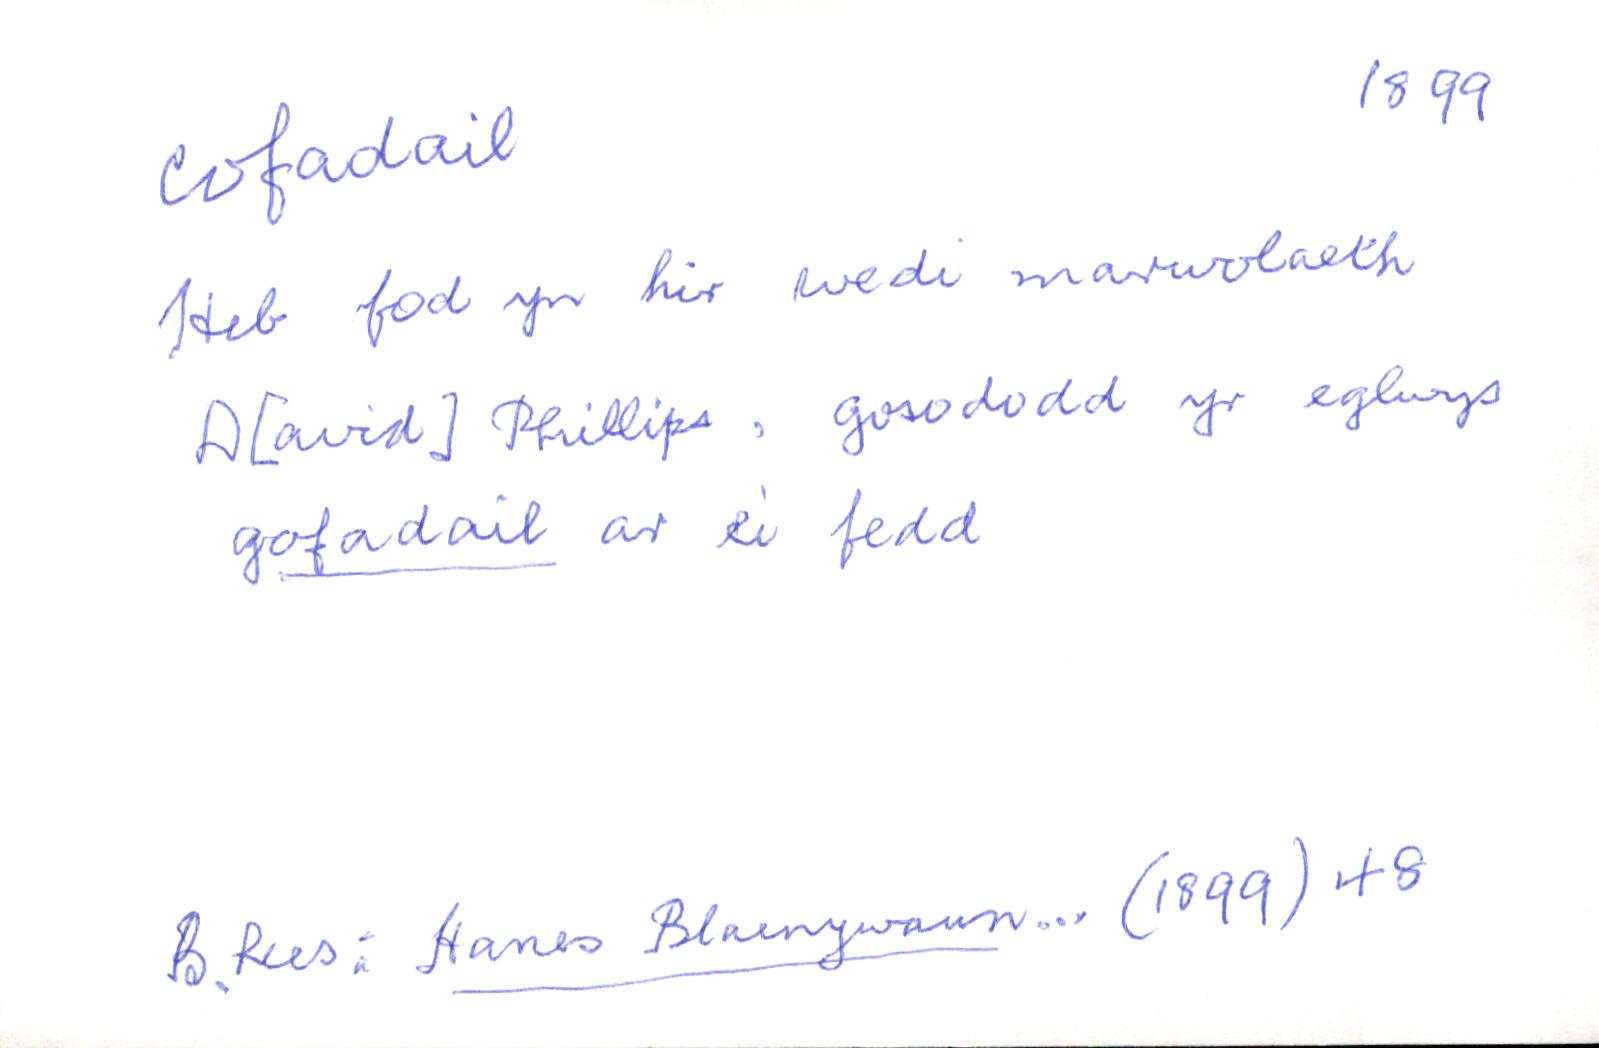 1899
cofadail
Heb fod yn hir wedi marwolaeth
D[avid] Phillips, gosododd yr eglwys
gofadail ar ei fedd
B. Rees: Hanes Blaenywaun... (1899) 48